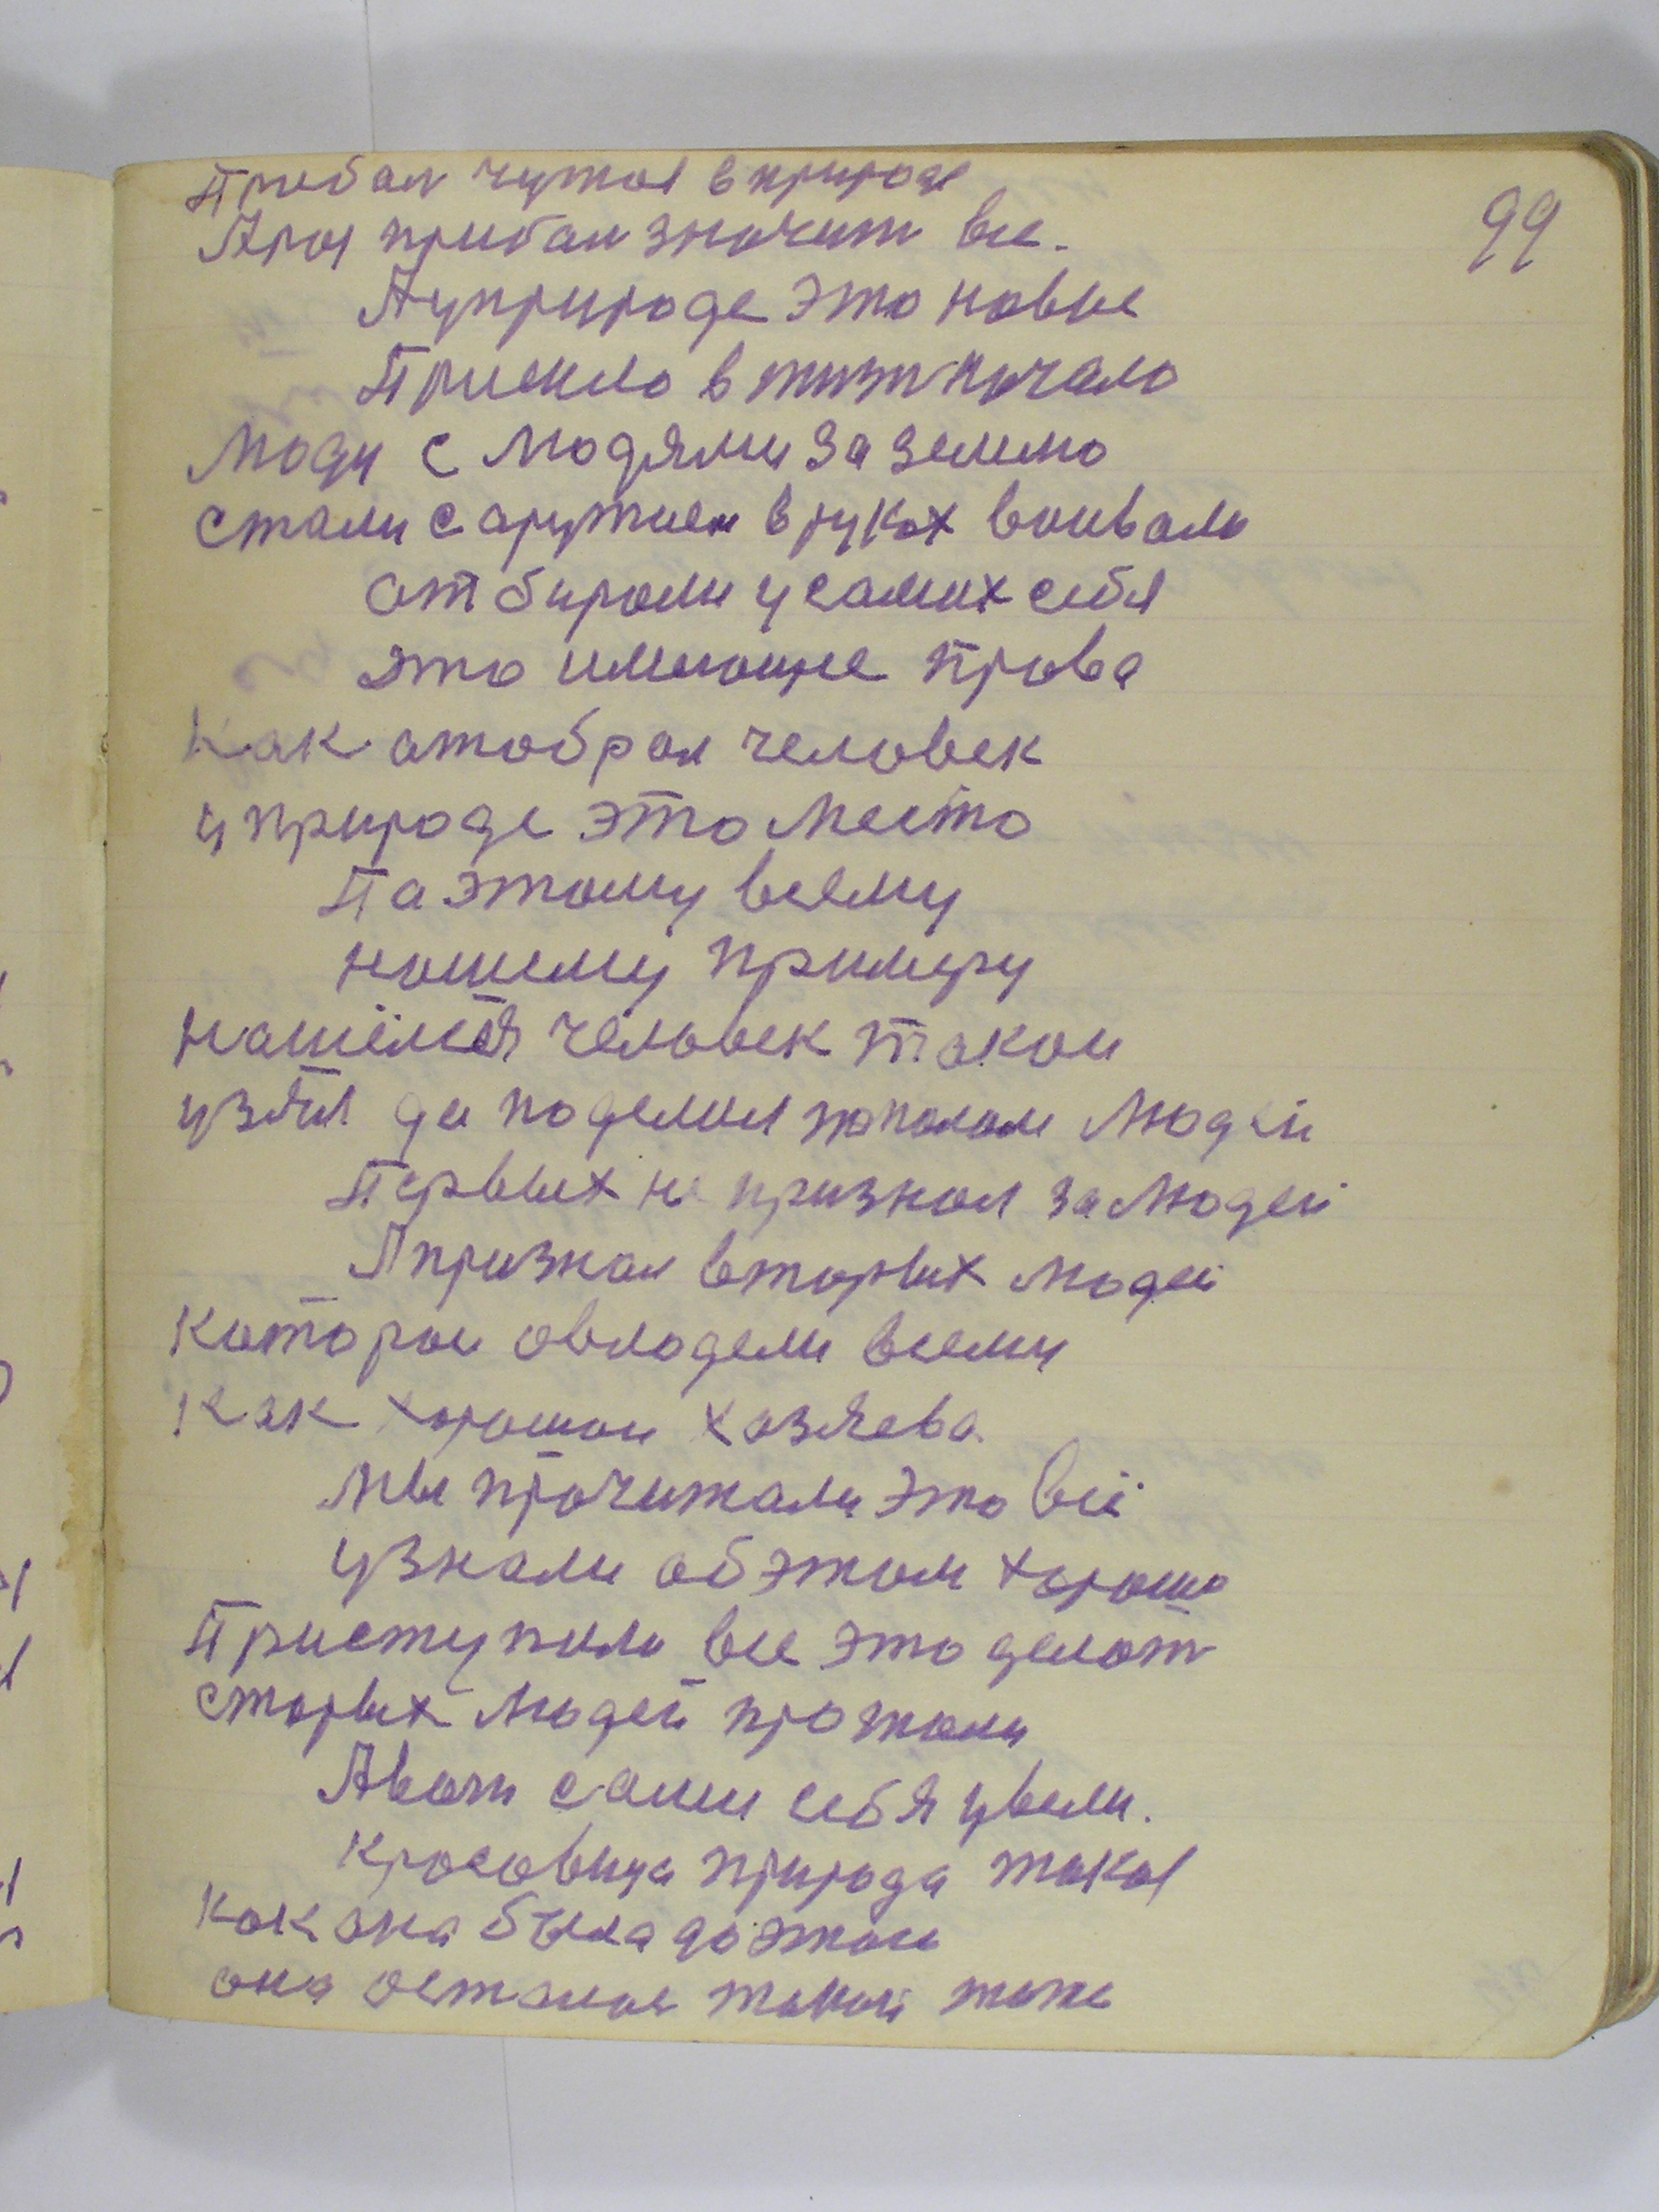 99
чужое в природе
значит все.
А у природе это новые
в жизни начало
Люди с людями за землю
стали с аружием в руках воивали
отбирали у самих себя
это имеющие права
Как отобрал человек
у природе это место
Па этому всему
нашему примеру
нашёлся человек такои
узял да поделил пополам людей
Первых не признал за людей
А признал вторых людей
каторы овладели всему
как хорошои хазяева.
Мы прочитали это всё
узнали об этом хорошо
Приступили все это делат
старых людей
А сами себя увели.
Красовица природа такая
как она была до этои
она такой тоже